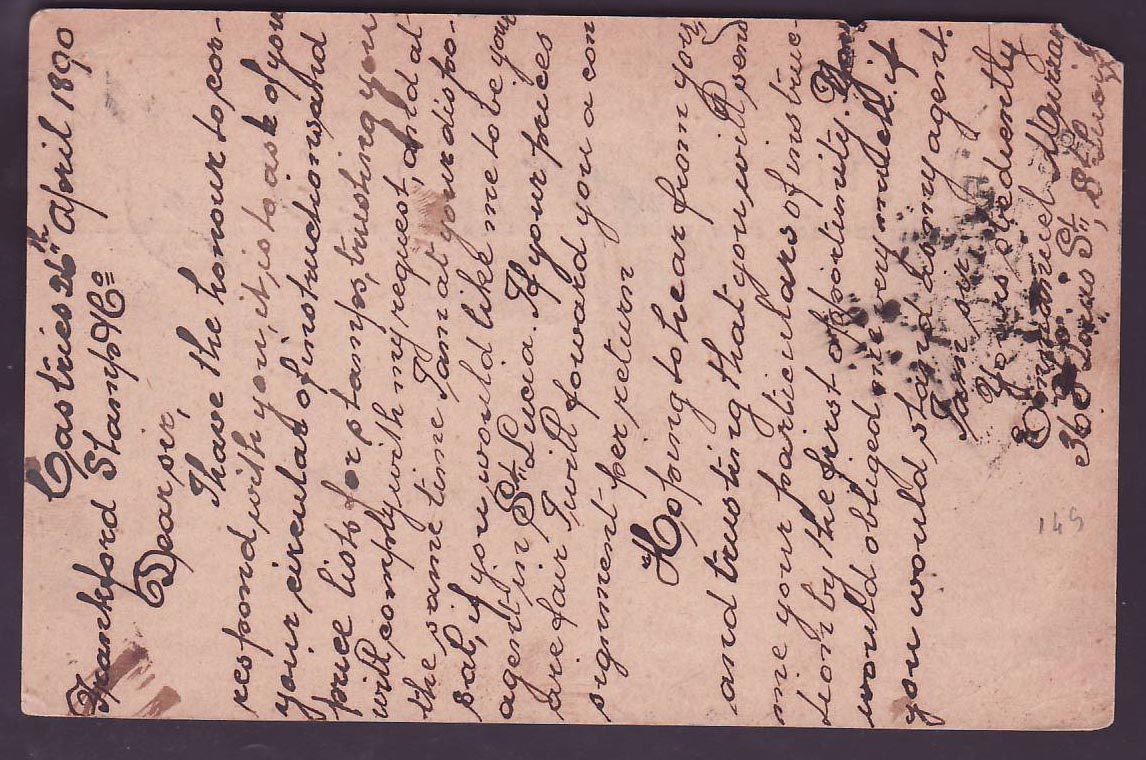 Castries 26th April 1890
Frankford Stamp & Co
Dear sir,
I have the honour to cor-
respond with you, it is to ask of you
your circular of instructions and
price lists for stamps, trusting you
will comply with my request, and at
the same time I am at your dispo-
sal, if you would like me to be your
agent in St. Lucia. If your prices
are fair I will foward you a con
signment per return
Hoping to hear from you
and trusting that you will send
me your particulars of instruc-
tion by the first opportunity. You
would obliged me very much if
you would stand as my agent.
I am sir
Yours obediently
Emmanuel
36 Louis St, St Lucia
149